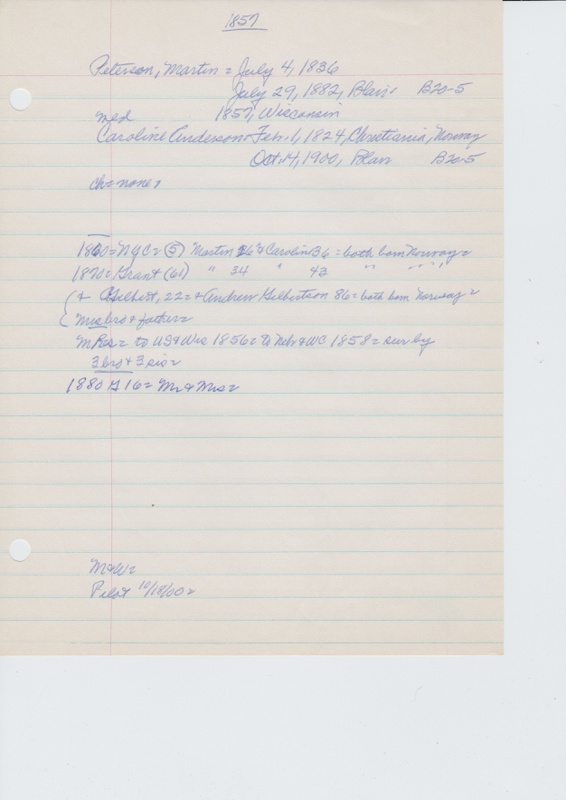 1857
Peterson, Martin = July 4, 1836
July 29, 1882, Blair B20-5
med 1857, Wisconsin
Caroline Anderson = Feb. 1, 1824, Christiania, Norway
Oct. 14, 1900, Blair B20-5
ch = none =
1860 = (5) Martin 26 & Caroline 36 = both born Norway =
1870 = Grant (61) " 34 " 43 " " "
& Gilbert, 22 = & Andrew Gilbertson 86 = both born Norway =
Mrs bro & father =
= to US & Wis 1856 = to Neb & WC 1858 = sur by
3 bro & 3 sis =
1880 G 16 = Mr & Mrs =
M & W =
Pilot 10/18/00 =